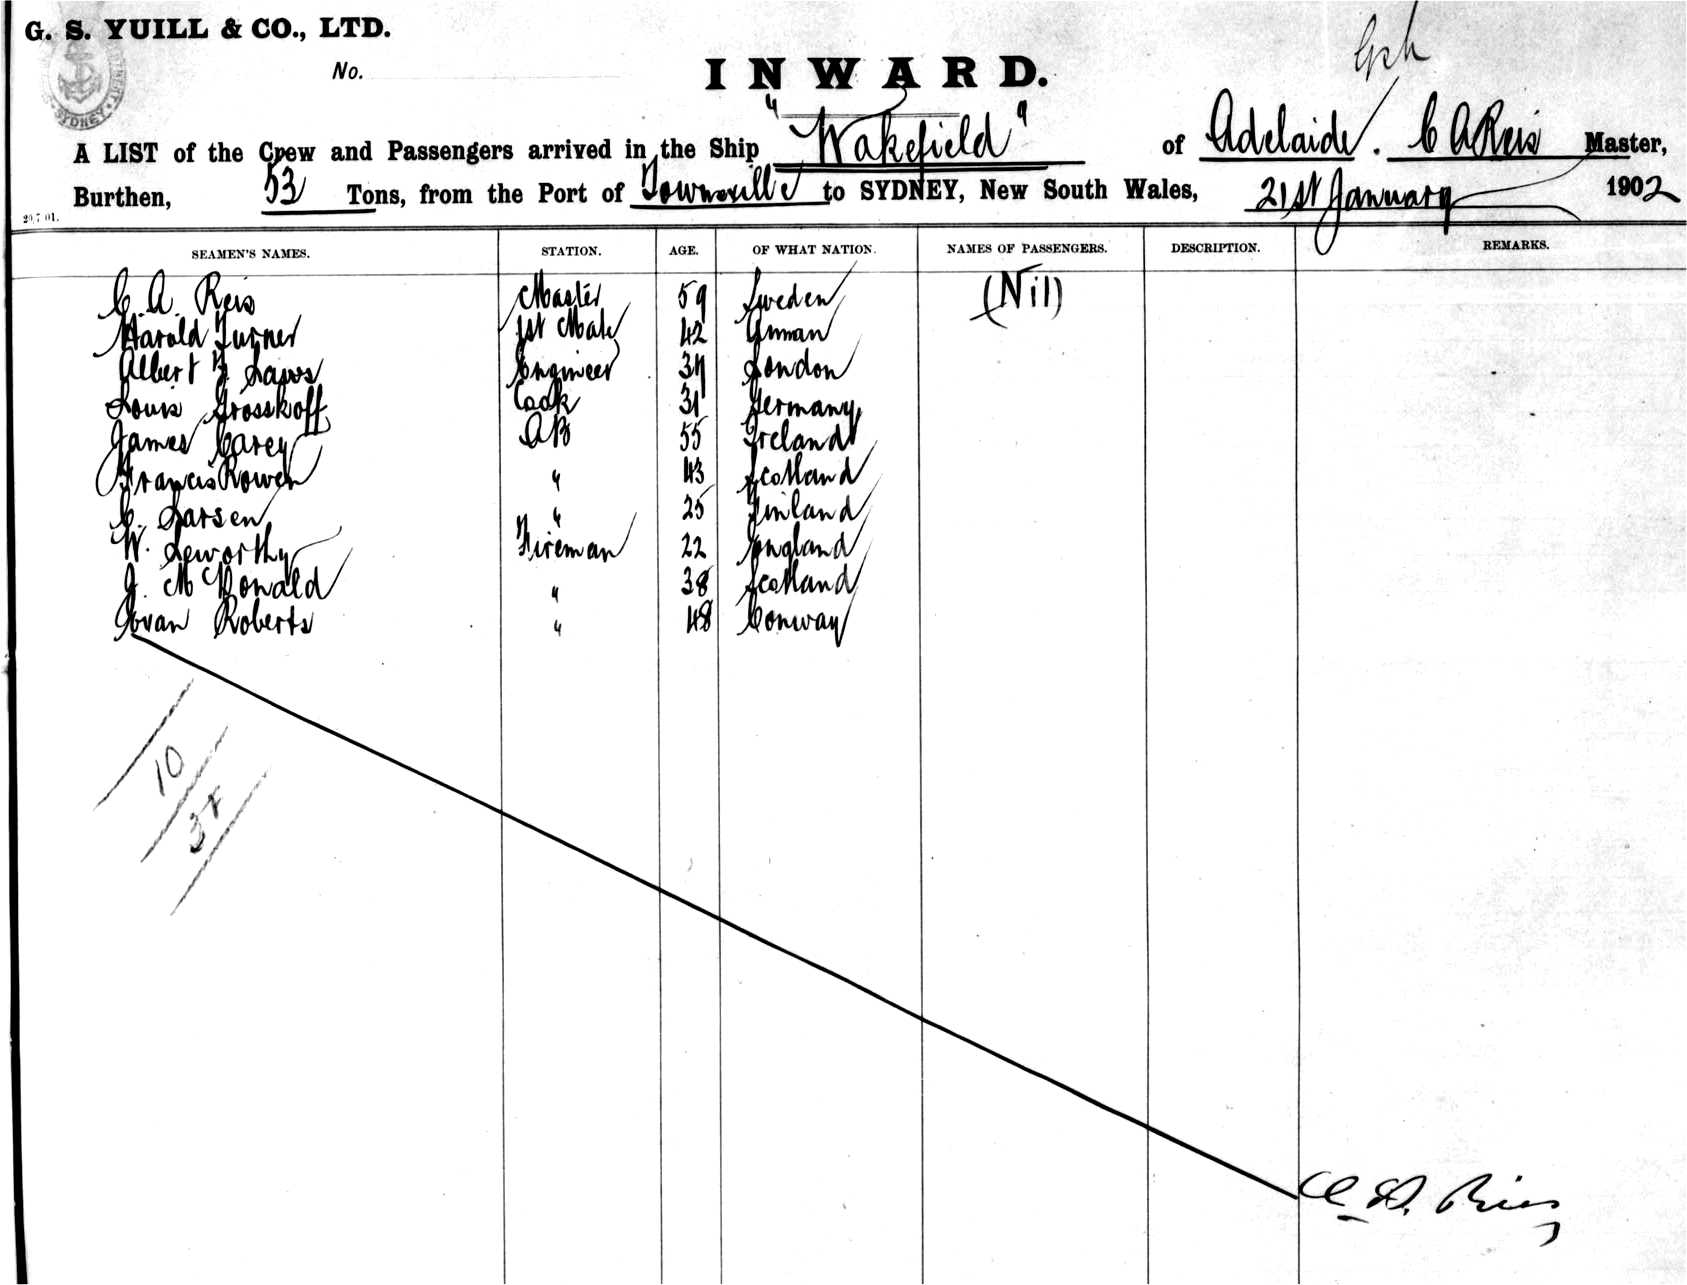 G. S. YUILL & CO., LTD.
No.
INWARD.
A LIST of the Crew and Passengers arrived in the Ship "Wakefield" of Adelaide. C A Reis Master,
Burthen, 53 Tons, from the Port of Townsville to SYDNEY, New South Wales, 21st January 1902
20.7.01.
SEAMEN'S NAMES. STATION. AGE. OF WHAT NATION. NAMES OF PASSENGERS. DESCRIPTION. REMARKS.
C. A. Reis Master 59 Sweden (Nil)
Harold Turner 1st Mate 42
Albert Laws Engineer London
Louis Grosskoff Cook 31 Germany
James Carey AB 55 Ireland
Francis Rowen " 43 Scotland
C. Larsen " 25 Finland
W. Leworthy Fireman 22 England
J. McDonald " 38 Scotland
Evan Roberts " 48 Conway
10
SYDNEY